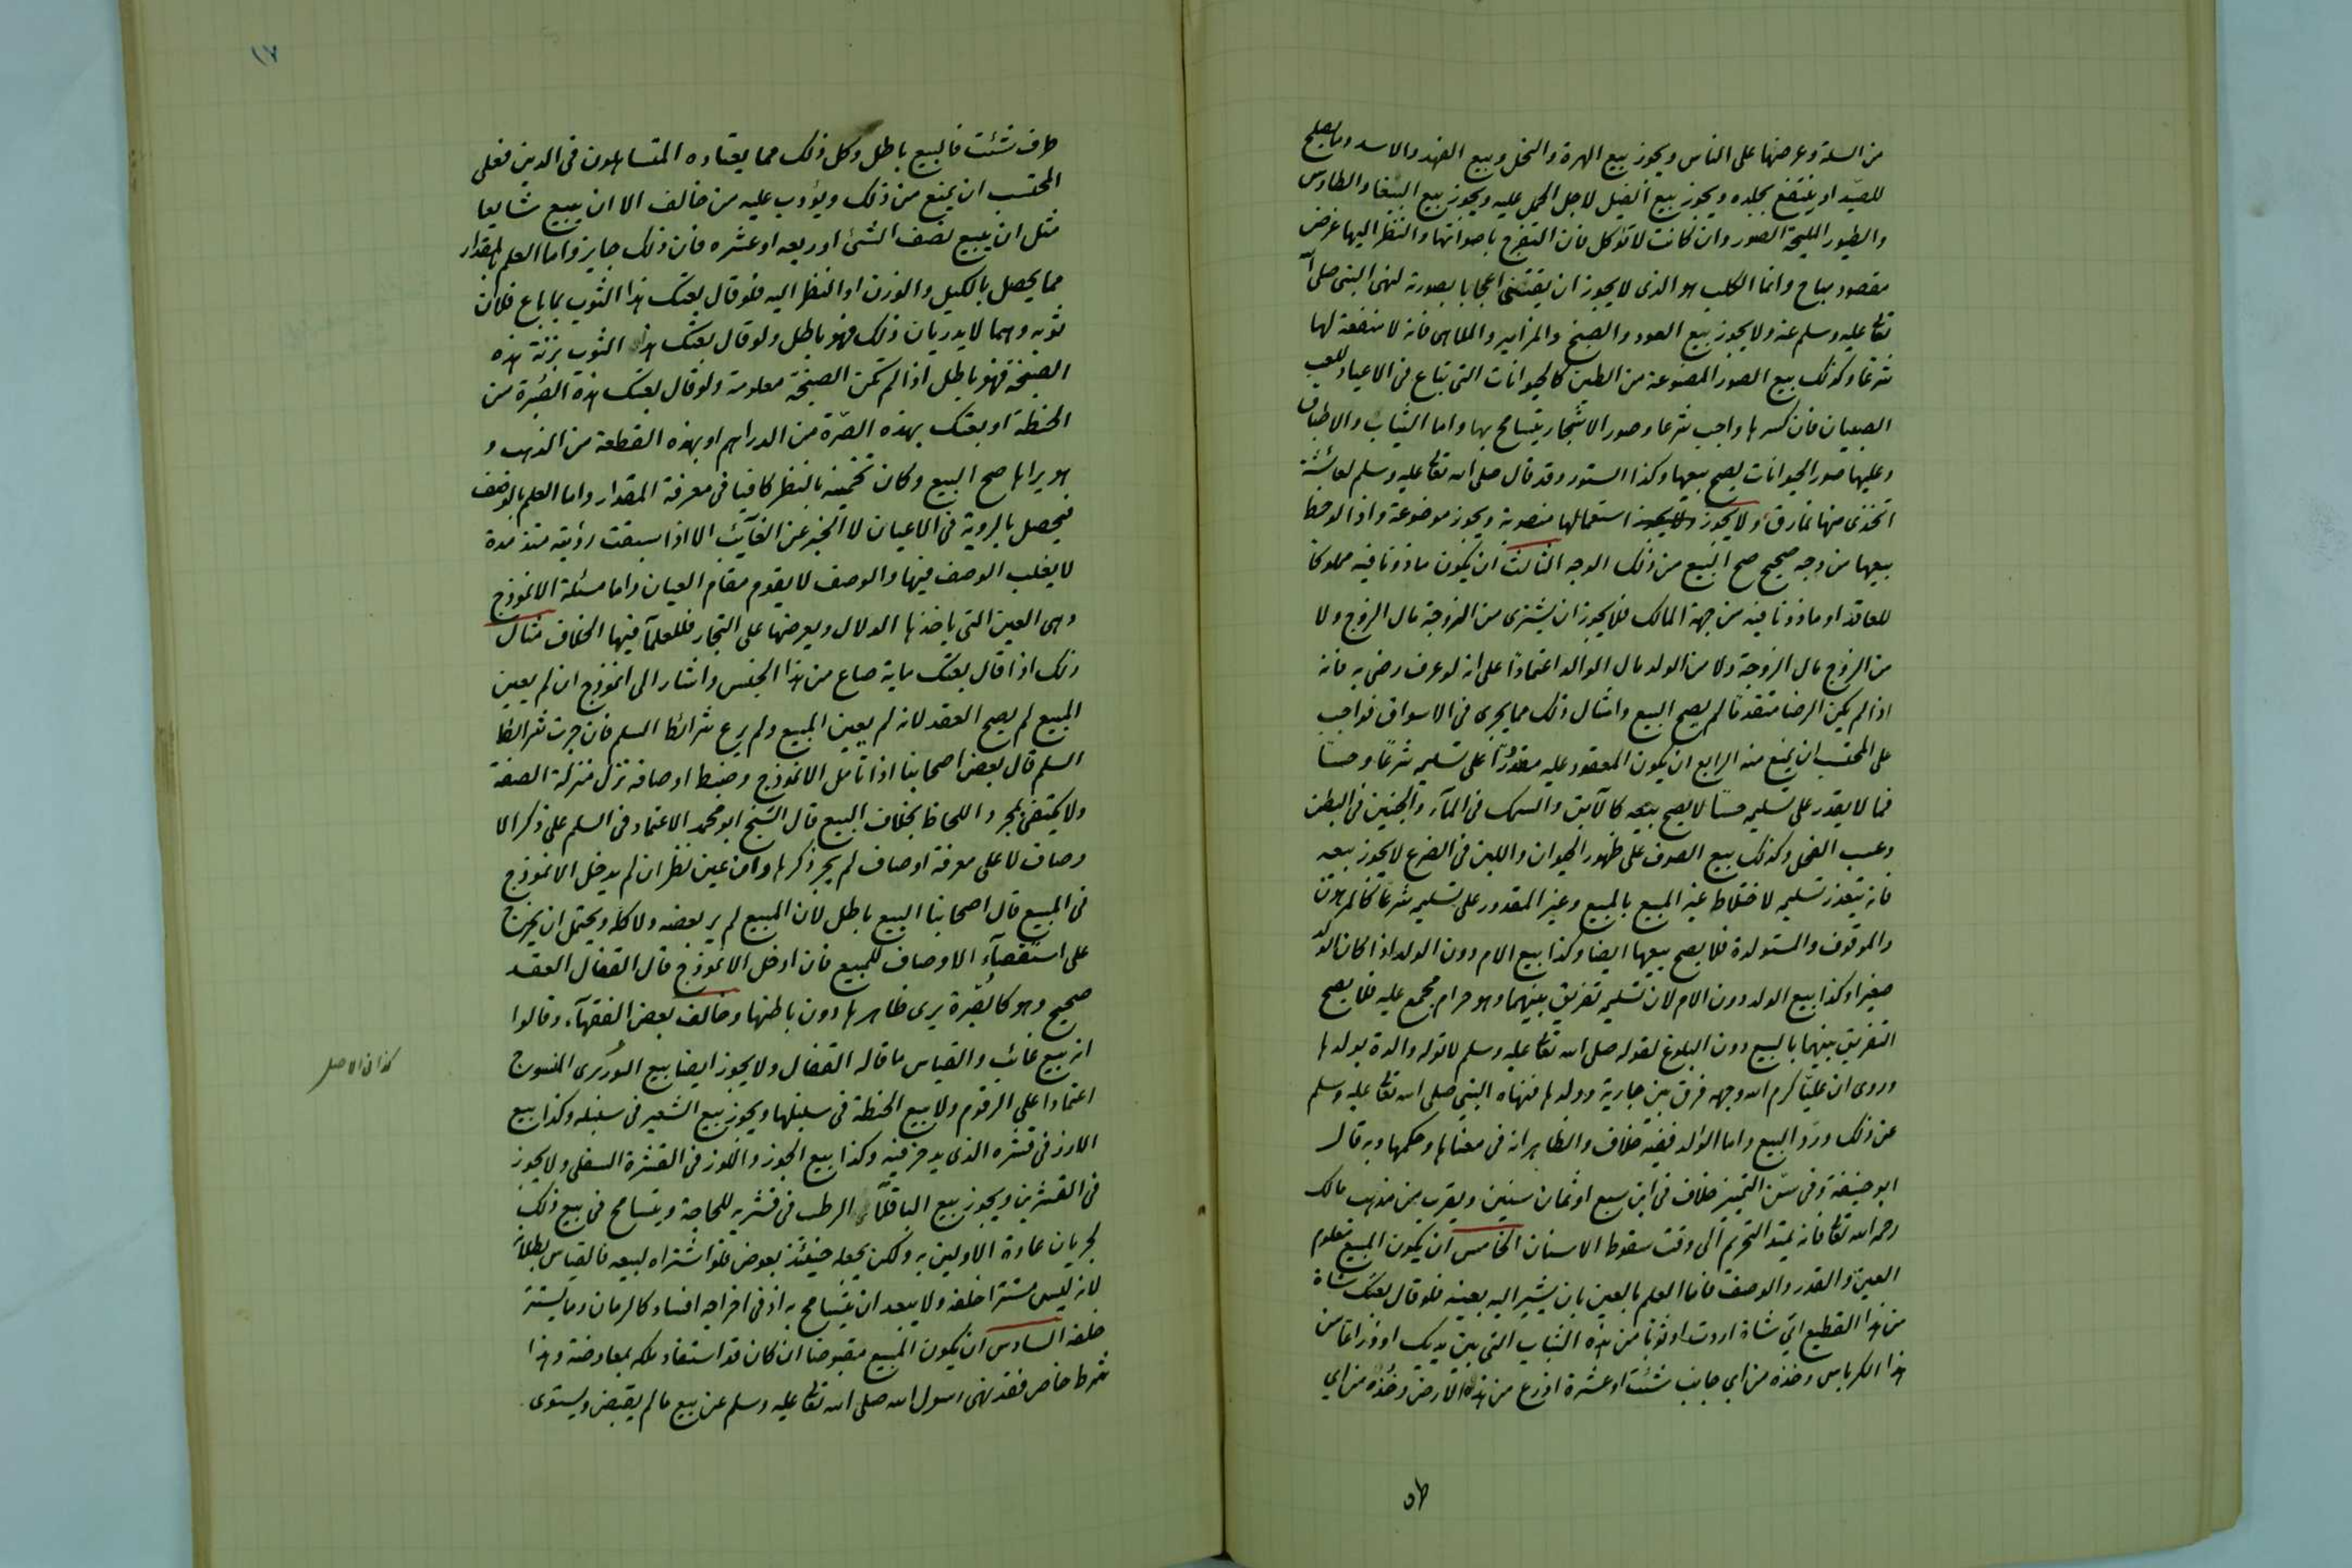 من السلة وعرضها على الناس ويجوز بيع الهرة والنحل وبيع الفهد والاسد وما يصلح
للصيد او ينتفع بجلده ويجوز بيع الفيل لاجل الحمل عليه ويجوز بيع الببغا والطاوس
والطيور المليحة الصور وان كانت لا تؤكل فان التفرج باصواتها والنظر اليها غرض
مقصود مباح وانما الكلب هو الذى لا يجوز ان يقتنى اعجابا بصورته لنهى النبى صلى الله
تعالى عليه وسلم عنه ولا يجوز بيع العود والصنج والمزامير والملاهى فانه لا منفعة لها
شرعا وكذلك بيع الصور المصنوعة من الطين كالحيوانات التى تباع فى الاعياد للعب
الصبيان فان كسرها واجب شرعا وصور الاشجار يتسامح بها واما الثياب والاطباق
وعليها صور الحيوانات يصح بيعها وكذا الستور وقد قال صلى الله تعالى عليه وسلم لعائشة
اتخذى منها نمارق ولا يجوز استعمالها منصوبة ويجوز موضوعة واذا لوحظ
بيعها من وجه صحيح صح البيع من ذلك الوجه الثالث ان يكون ماذونا فيه مملوكا
للعاقد او ماذونا فيه من جهة المالك فلا يجوز ان يشترى من الزوجة مال الزوج ولا
من الزوج مال الزوجة ولا من الولد مال الوالد اعتمادا على انه لو عرف رضى به فانه
اذا لم يكن الرضا متقدما لم يصح البيع وامثال ذلك مما يجرى فى الاسواق فواجب
على المحتسب ان يمنع منه الرابع ان يكون المعقود عليه مقدورا على تسليمه شرعا وحسا
فما لا يقدر على تسليمه حسا لا يصح بيعه كالآبق والسمك فى المآء والجنين فى البطن
وعسب الفحل وكذلك بيع الصوف على ظهور الحيوان واللبن فى الضرع لا يجوز بيعه
فانه يتعذر تسليمه لاختلاط غير المبيع بالمبيع وغير المقدور على تسليمه شرعا كالمرهون
والموقوف والمستولدة فلا يصح بيعها ايضا وكذا بيع الام دون الولد اذا كان الولد
صغيرا وكذا بيع الولد دون الام لان تسليمه تفريق بينهما وهو حرام مجمع عليه فلا يصح
التفريق بينهما بالبيع دون البلوغ لقوله صلى الله تعالى عليه وسلم لا توله والدة بولدها
وروى ان عليا كرم الله وجهه فرق بين جارية وولدها فنهاه النبى صلى الله تعالى عليه وسلم
عن ذلك ورد البيع واما الوالد ففيه خلاف والظاهر انه فى معناها وحكمها وبه قال
ابو حنيفة وفى سن التمييز خلاف فى ابن سبع او ثمان سنين ويقرب من مذهب مالك
رحمه الله تعالى فانه يمتد التحريم الى وقت سقوط الاسنان الخامس ان يكون المبيع معلوم
العين والقدر والوصف فاما العلم بالعين بان يشير اليه بعينه فلو قال بعتك شاة
من هذا القطيع اى شاة اردت او ثوبا من هذه الثياب التى بين يديك او ذراعا من
هذا الكرباس وخذه من اى جانب شئت او عشرة اذرع من هذه الارض وخذه من اي
ط٥
١٧
طرف شئت فالبيع باطل وكل ذلك مما يعتاده المتساهلون فى الدين فعلى
المحتسب ان يمنع من ذلك ويؤدب عليه من خالف الا ان يبيع شايعا
مثل ان يبيع نصف الشئ او ربعه او عشره فان ذلك جايز واما العلم بالمقدار
مما يحصل بالكيل والوزن او النظر اليه فلو قال بعتك هذا الثوب بما باع فلان
ثوبه وهما لا يدريان ذلك فهو باطل ولو قال بعتك هذا الثوب بزنة هذه
الصنجة فهو باطل اذا لم تكن الصنجة معلومة ولو قال بعتك هذه الصبرة من
الحنطة او بعتك بهذه الصرة من الدراهم او بهذه القطعة من الذهب و
هو يراها صح البيع وكان تخمينه بالنظر كافيا فى معرفة المقدار واما العلم بالوصف
فيحصل بالروية فى الاعيان لا الخبر عن الغآئب الا اذا سبقت رؤيته منذ مدة
لا يغلب الوصف فيها والوصف لا يقوم مقام العيان واما مسئلة الانموذج
وهى العين التى ياخذها الدلال ويعرضها على التجار فللعلمآ فيها الخلاف مثال
ذلك اذا قال بعتك ماية صاع من هذا الجنس واشار الى انموذج ان لم يعين
المبيع لم يصح العقد لانه لم يعين المبيع ولم يرع شرائط السلم فان جرت شرائط
السلم قال بعض اصحابنا اذا تامل الانموذج وضبط اوصافه نزل منزلة الصفة
ولا يكتفى بمجرد اللحاظ بخلاف البيع قال الشيخ ابو محمد الاعتماد فى السلم على ذكر الا
وصاف لا على معرفة اوصاف لم يجر ذكرها وان عين نظر ان لم يدخل الانموذج
فى المبيع قال اصحابنا البيع باطل لان المبيع لم ير بعضه ولا كله ويحتمل ان يخرج
على استقصآء الاوصاف للمبيع فان ادخل الانموذج قال القفال العقد
صحيح وهو كالصبرة يرى ظاهرها دون باطنها وخالف بعض الفقهآء وقالوا
انه بيع غائب والقياس ما قاله القفال ولا يجوز ايضا بيع التوزى المنسوج
اعتمادا على الرقوم ولا بيع الحنطة فى سنبلها ويجوز بيع الشعير فى سنبله وكذا بيع
الارز فى قشره الذى يدخر فيه وكذا بيع الجوز واللوز فى القشرة السفلى ولا يجوز
فى القشرين ويجوز بيع الباقلآء الرطب فى قشريه للحاجة ويتسامح فى بيع ذلك
لجريان عادة الاولين به ولكن يجعله حينئذ بعوض فلو اشتراه لبيعه فالقياس بطلانه
لانه ليس مستترا خلقة ولا يبعد ان يتسامح به اذ فى اخراجه افساد كالرمان وما يستتر
خلقة السادس ان يكون المبيع مقبوضا ان كان قد استفاد ملكه بمعاوضة وهذا
شرط خاص فقد نهى رسول الله صلى الله تعالى عليه وسلم عن بيع ما لم يقبض ويستوى
كذا فى الاصل